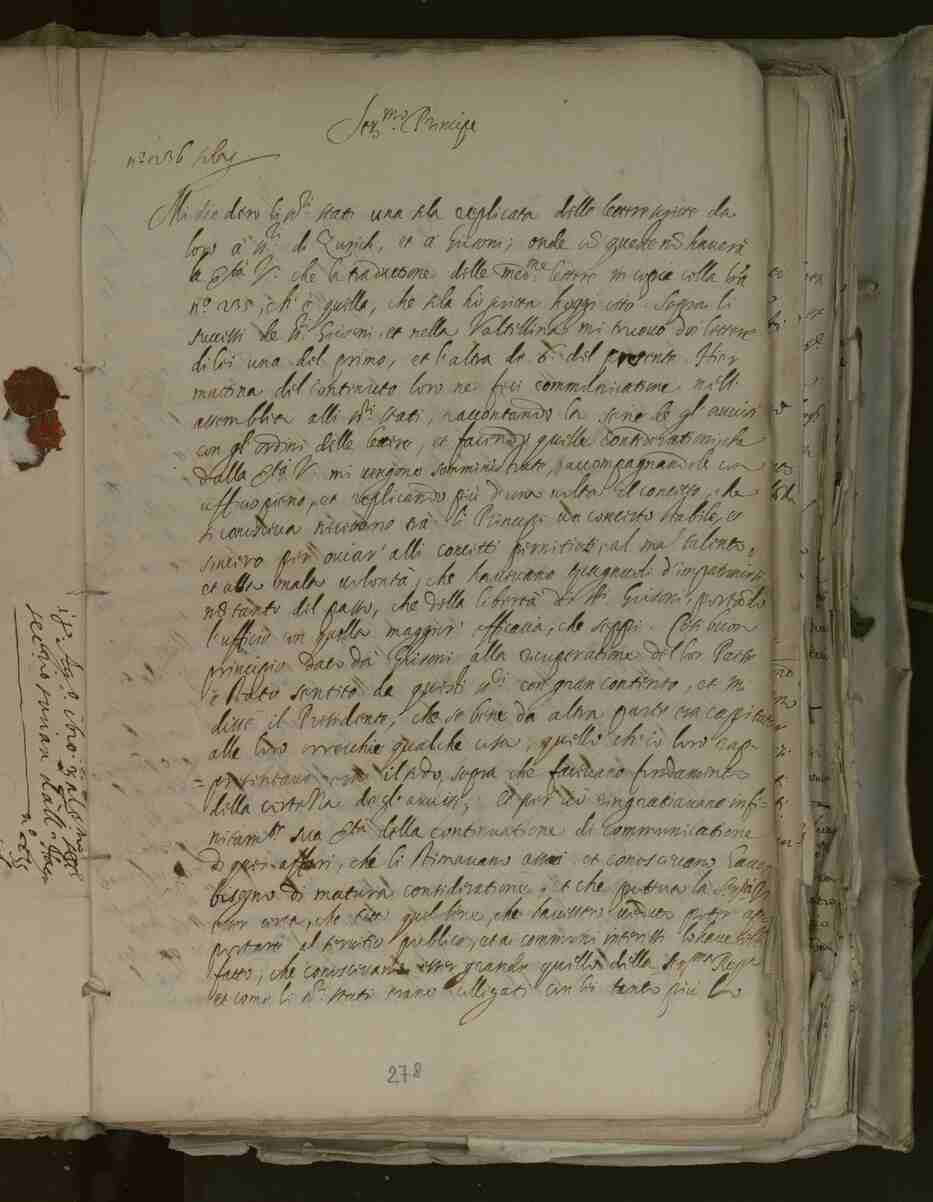 Ser.mo Principe
n.o 236 sola
Mi diedero li ss.ri stati una sola replicata delle lettere scritte da
loro a ss.ri di Zurich, et a Grisoni; onde con queste non haverà
la S.tà V.a che la traduttione delle med.me lettere in copia colla
n.o 235, ch'è quella, che sola hò scritta hoggi otto. Sopra li
successi de ss.ri Grisoni, et nella Valtellina mi truovo doi lettere
di lei una del primo, et l'altra de 6 del presente. Hier
mattina del contenuto loro ne feci communicatione nell'
assemblea alli ss.ri stati, raccontando la serie de gl'avvisi
con gl'ordini delle lettere, et facendo quelle considerationi, che
dalla S.tà V.a mi vengono somministrate, accompagnandole con
ufficio pieno, et replicando più d'una volta il concetto, che
si conosceva necessario trà li Principi un concerto stabile, et
sincero per oviar' alli concetti pernitiosi, al mal talento,
et alla mala volontà, che havevano Spagnuoli d'impatronirsi
non tanto del passo, che della libertà de ss.ri Grisoni, portando
l'ufficio con quella maggior' efficacia, che seppi. Così buon
principio dato da Grisoni alla ricuperatione del lor Paese
è stato sentito da questi ss.ri con gran contento, et mi
disse il Presidente, che se bene da altra parte era capitata
alle loro orrecchie qualche cosa, quello ch'io loro rap=
=presentavo era il sodo, sopra che facevano fondamento
della certezza degl'avvisi; et per ciò ringratiavano infi=
nitam.te sua S.tà della continuatione di communicatione
di questi affari, che li stimavano assai et conoscevano haver
bisogno di matura consideratione, et che poteva la Ser.tà V.a
esser certa, che tutto quel bene, che havessero veduto poter ap=
portarsi al servitio publico, et a communi interessi l'haverebbero
fatto, che conoscevano esser grande quello della Ser.ma Rep.ca
et come li ss.ri stati erano collegati con lei tanto più lo
278